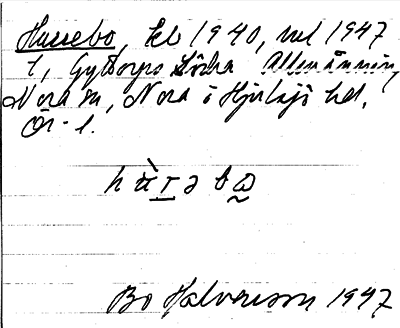 Hussebo, kb 1940, enl 1947
t, Gyttorps Södra Allmänning,
Nora sn, Nora o Hjulsjö hd,
Ör. l.
Bo Halvarsson 1947